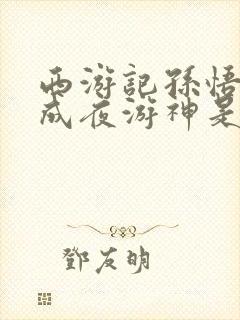 西游記孫悟
成夜游神是
鄧友明